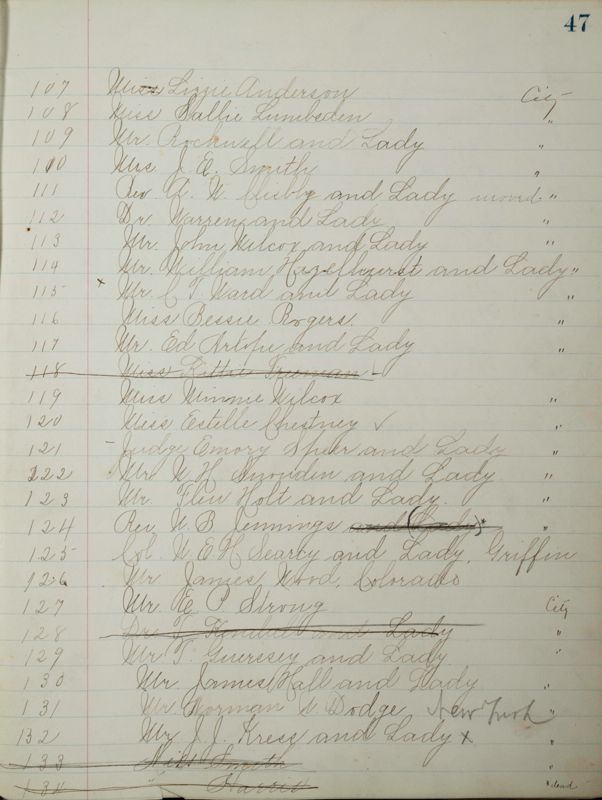 47
107 Miss Lizzie Anderson City
108 Miss Sallie Lumbsden "
109 Mr. Rockwell and Lady "
110 Mrs J. A. Smith "
111 Rev. A. W. and Lady moved "
112 Dr Warren and Lady "
113 Mr. John Wilcox and Lady "
114 Mr. William Hazelhurst and Lady "
115 x Mr. C T Ward and Lady "
116 Miss Bessie Rogers. "
117 Mr. Ed Artope and Lady "
118 Miss Kittie Freeman
119 Miss Minnie Wilcox "
120 Miss Estelle Chestney ✓ "
121 - Judge Emory Speer and Lady "
122 Mr W H Snowden and Lady "
123 Mr. Holt and Lady. "
124 Rev. W B Jennings and (Lady) "
125 Col. W E H Searcy and Lady. Griffin
126 Mr James Wood, Colorado
127 Mr. P Strong City
128 Dr. T. and Lady "
129 Mr T. Guerssey and Lady "
130 Mr. James Hall and Lady "
131 Mr Norman W Dodge New York
132 Mr J. J. Kress and Lady x "
133 Miss Smith "
134 " Harris " dead